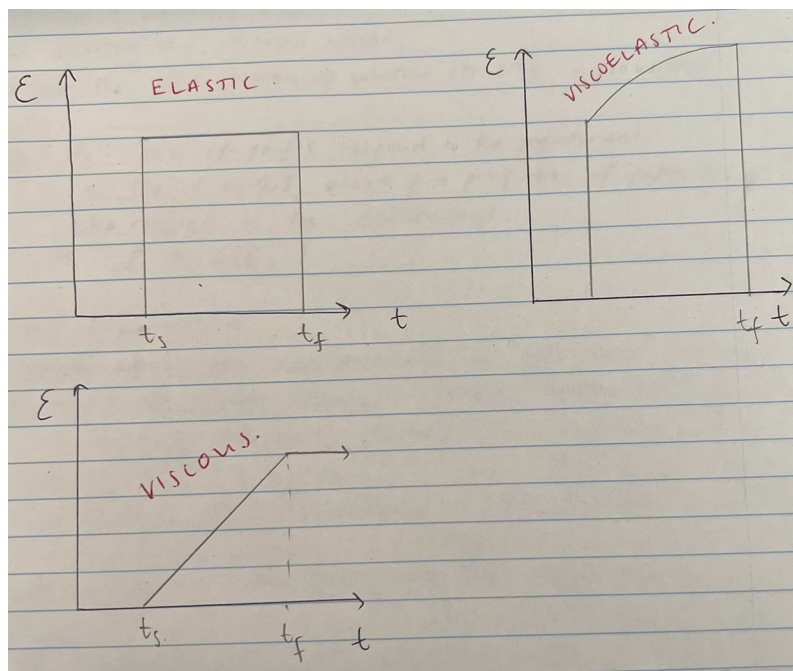 ε
ELASTIC.
t_s
t_f
t
ε
VISCOELASTIC.
t_f
t
ε
VISCOUS.
t_s.
t_f
t